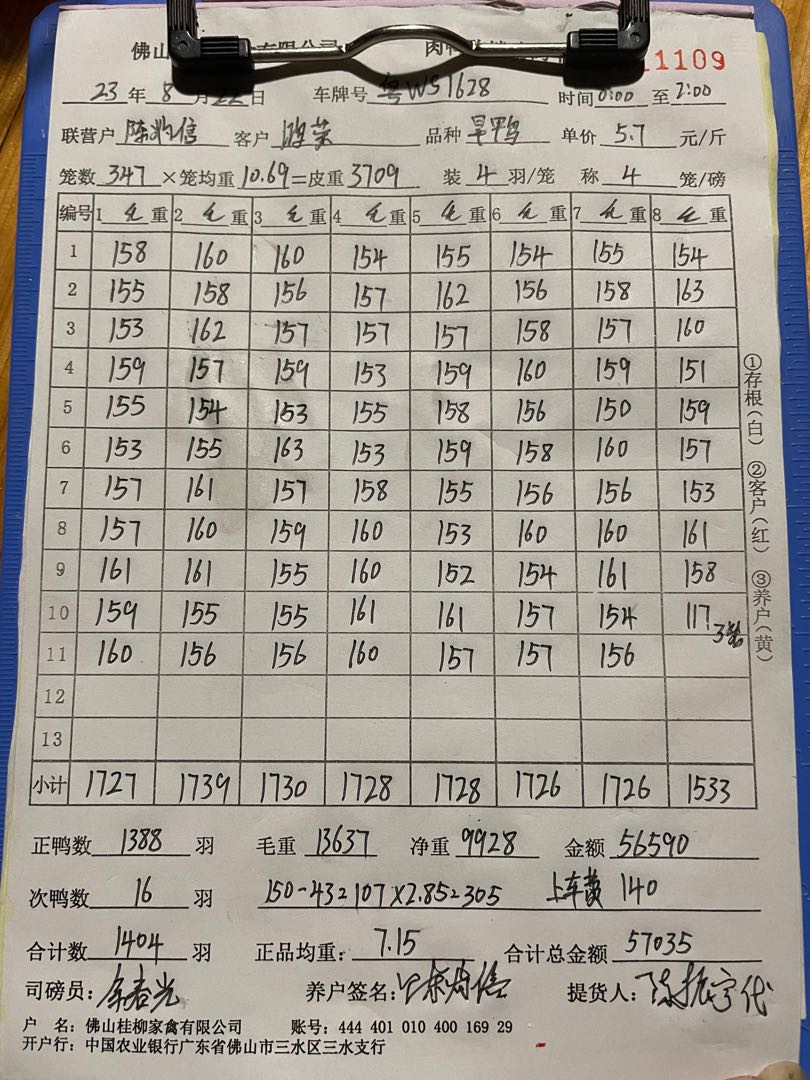 佛山 有限公司 肉 1109
23年8月22日 车牌号 粤WS1628 时间0:00至2:00
联营户 陈灿信 客户 鸿荣 品种 旱鸭 单价 5.7 元/斤
笼数 347 ×笼均重 10.69=皮重 3709 装 4 羽/笼 称 4 笼/磅
编号 1毛重 2毛重 3毛重 4毛重 5毛重 6毛重 7毛重 8毛重
1 158 160 160 154 155 154 155 154
2 155 158 156 157 162 156 158 163
3 153 162 157 157 157 158 157 160
4 159 157 159 153 159 160 159 151
5 155 154 153 155 158 156 150 159
6 153 155 163 153 159 158 160 157
7 157 161 157 158 155 156 156 153
8 157 160 159 160 153 160 160 161
9 161 161 155 160 152 154 161 158
10 159 155 155 161 161 157 154 117 3笼
11 160 156 156 160 157 157 156
12
13
小计 1727 1739 1730 1728 1728 1726 1726 1533
正鸭数 1388 羽 毛重 13637 净重 9928 金额 56590
次鸭数 16 羽 150-43=107×2.85=305 上车费 140
合计数 1404 羽 正品均重: 7.15 合计总金额 57035
司磅员: 养户签名: 提货人: 陈振宇代
户 名: 佛山桂柳家禽有限公司 账号: 444 401 010 400 169 29
开户行: 中国农业银行广东省佛山市三水区三水支行
①存根(白) ②客户(红) ③养户(黄)